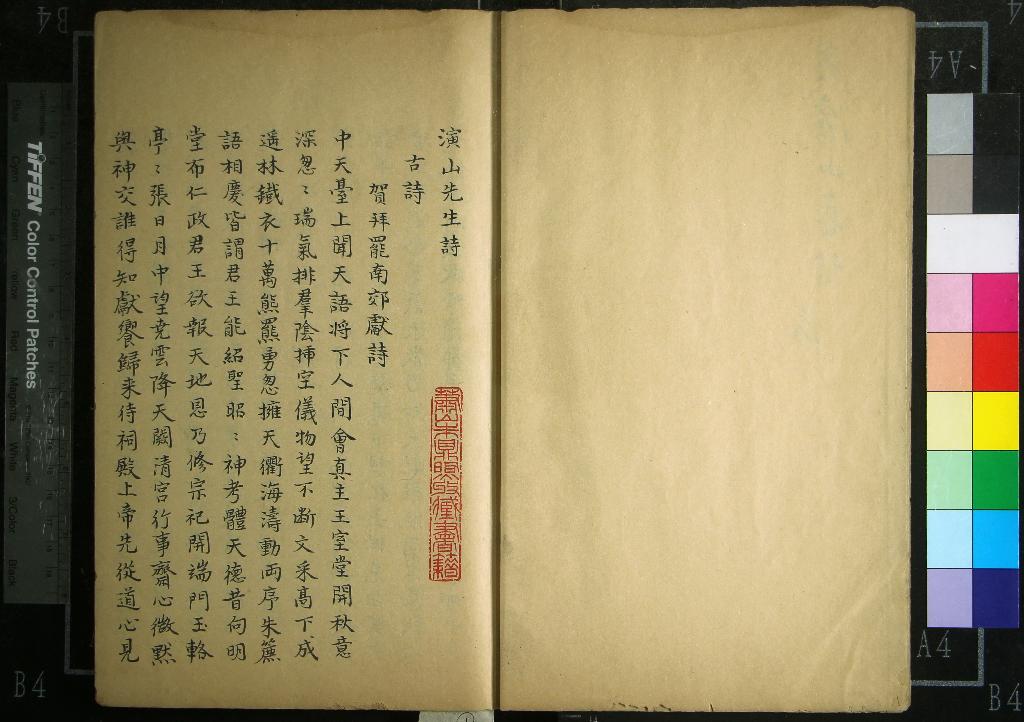 演山先生詩
古詩
賀拜罷南郊獻詩
中天臺上聞天語将下人間會真主王室堂開秋意
深忽〻瑞氣排羣陰揷空儀物望不断文采高下成
遥林鐵衣十萬熊羆勇忽擁天衢海濤動両序朱簾
語相慶皆謂君王能紹聖昭〻神考體天德昔向明
堂布仁政君王欲報天地恩乃修宗祀開端門玉輅
亭〻張日月中望尭雲降天闕清宫行事齋心微黙
與神交誰得知獻饗歸来待祠殿上帝先從道心見
蕭山朱鼎煦收藏書籍
TIFFEN Color Control Patches
B4
A4
A4
B4
B4